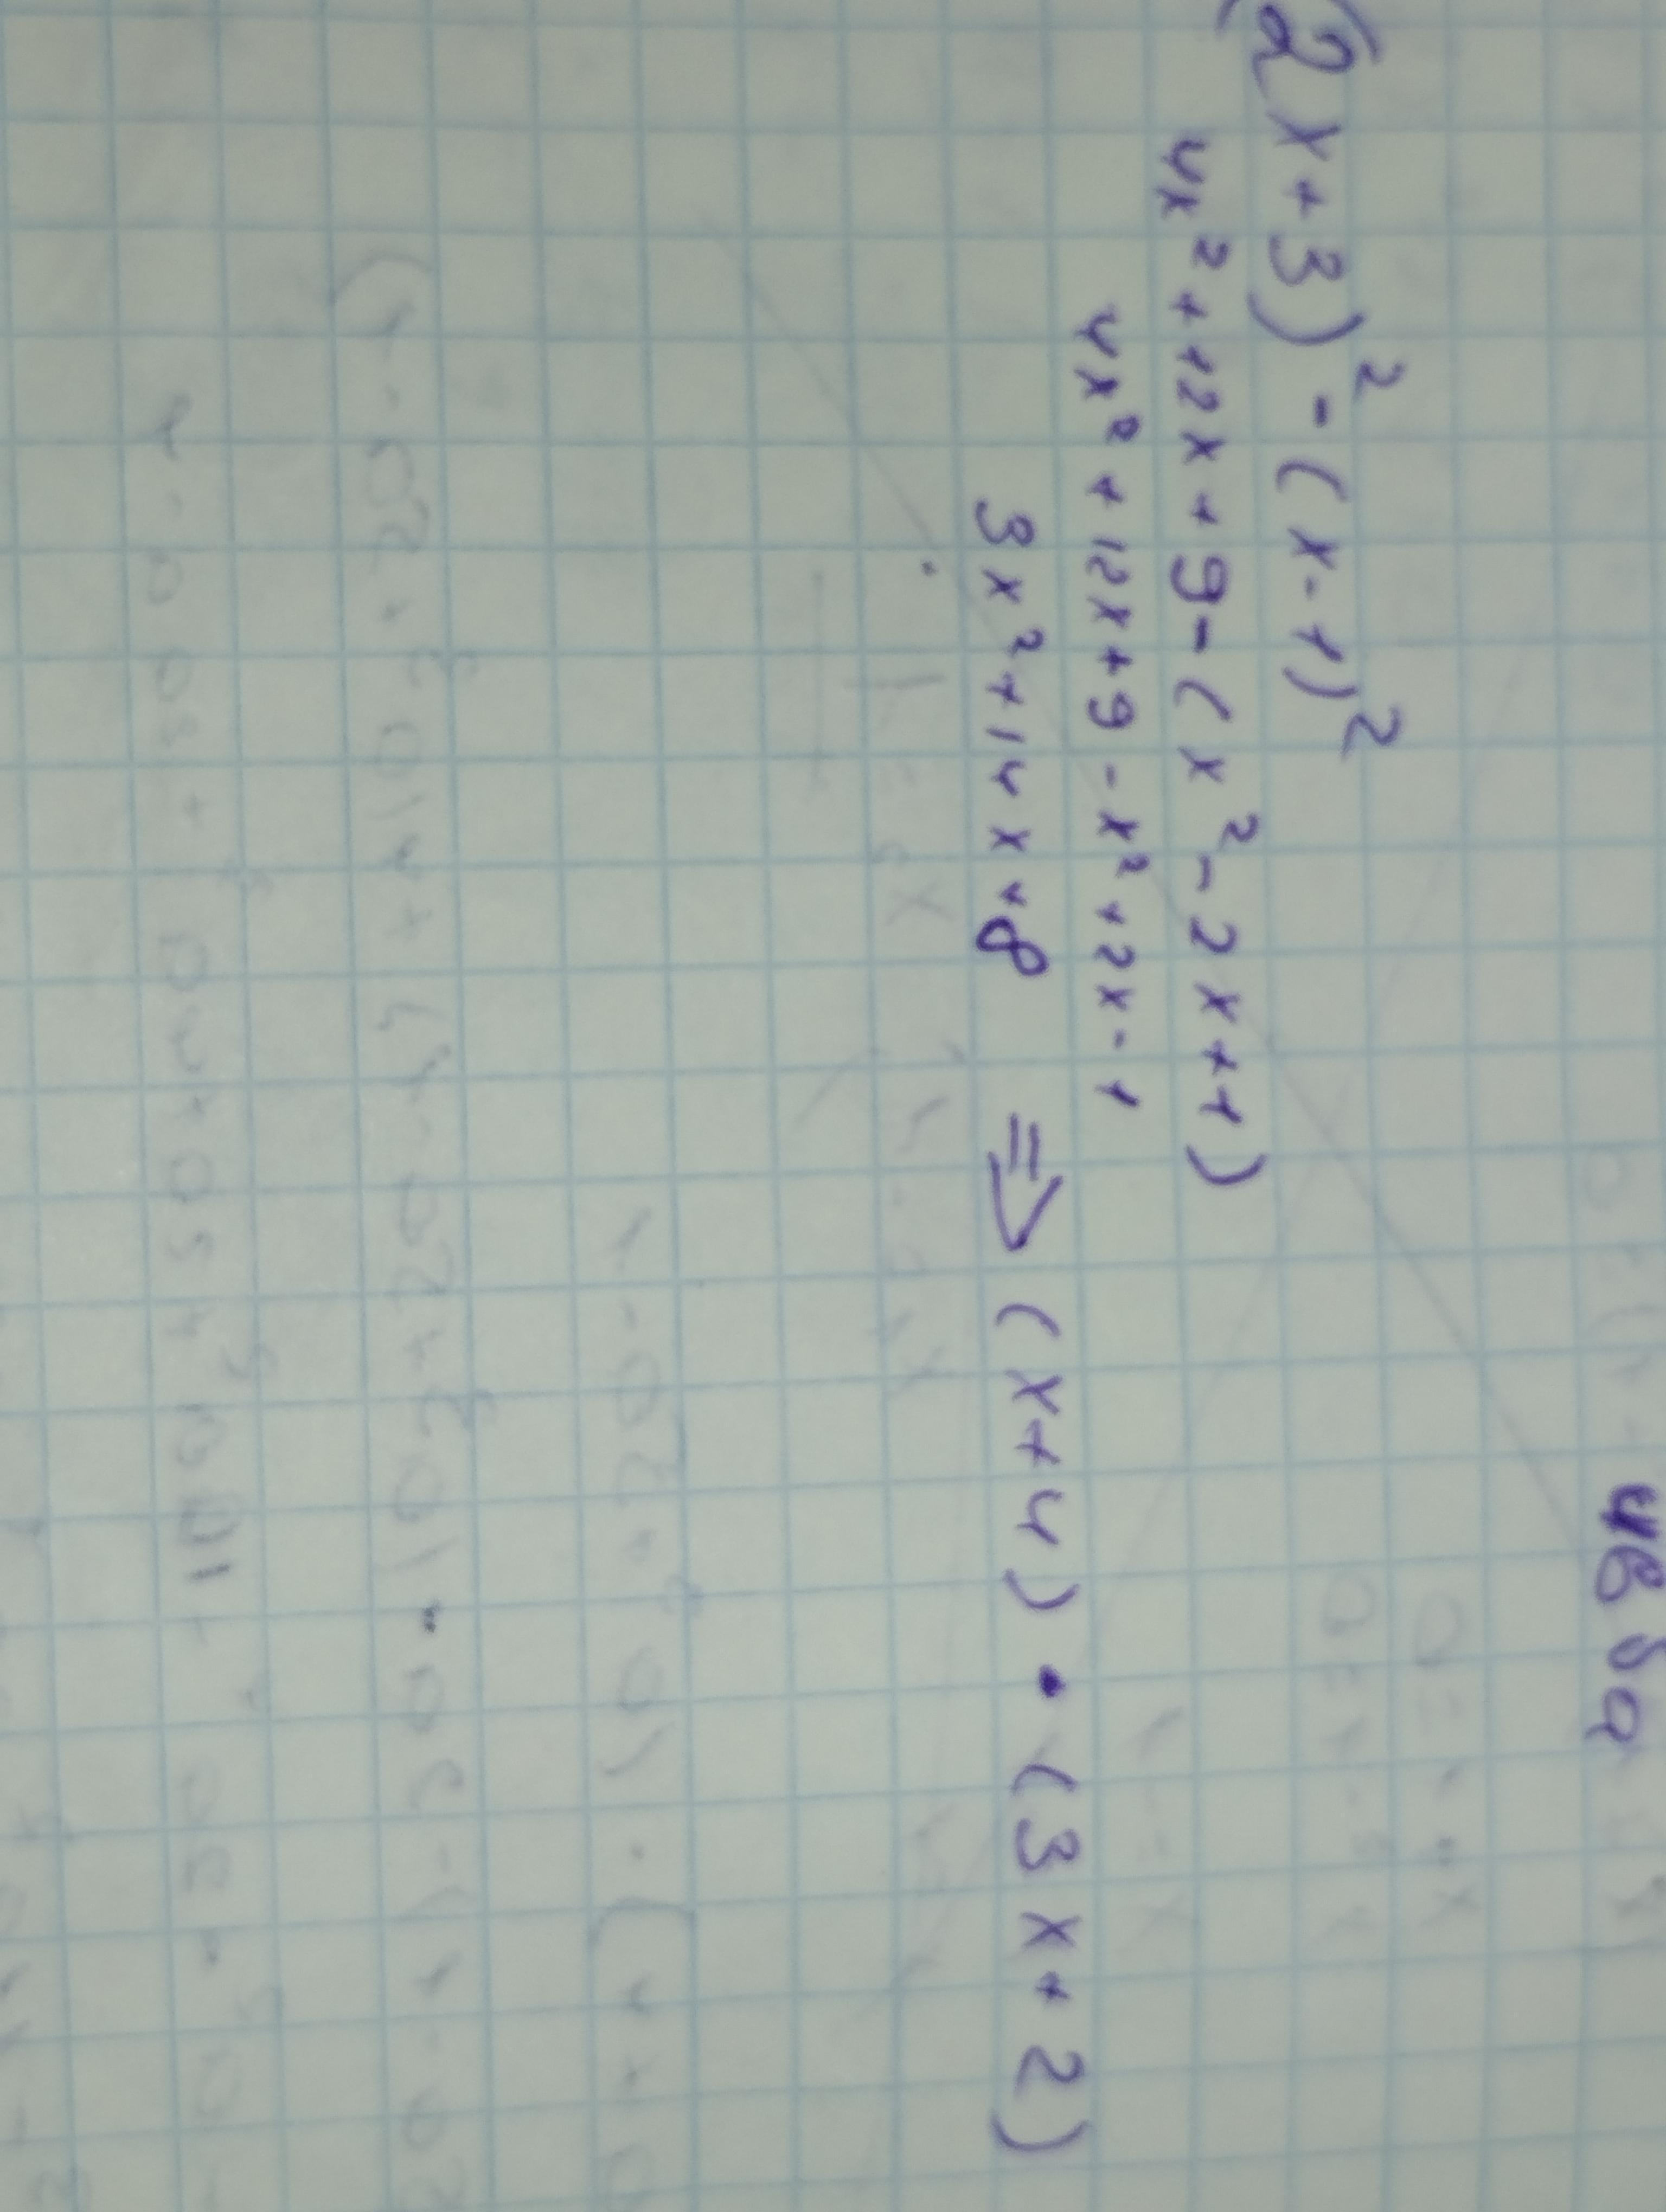 (2x+3)² - (x-1)²
4x² + 12x + 9 - (x² - 2x + 1)
4x² + 12x + 9 - x² + 2x - 1
3x² + 14x + 8 ⇒ (x+4) • (3x+2)